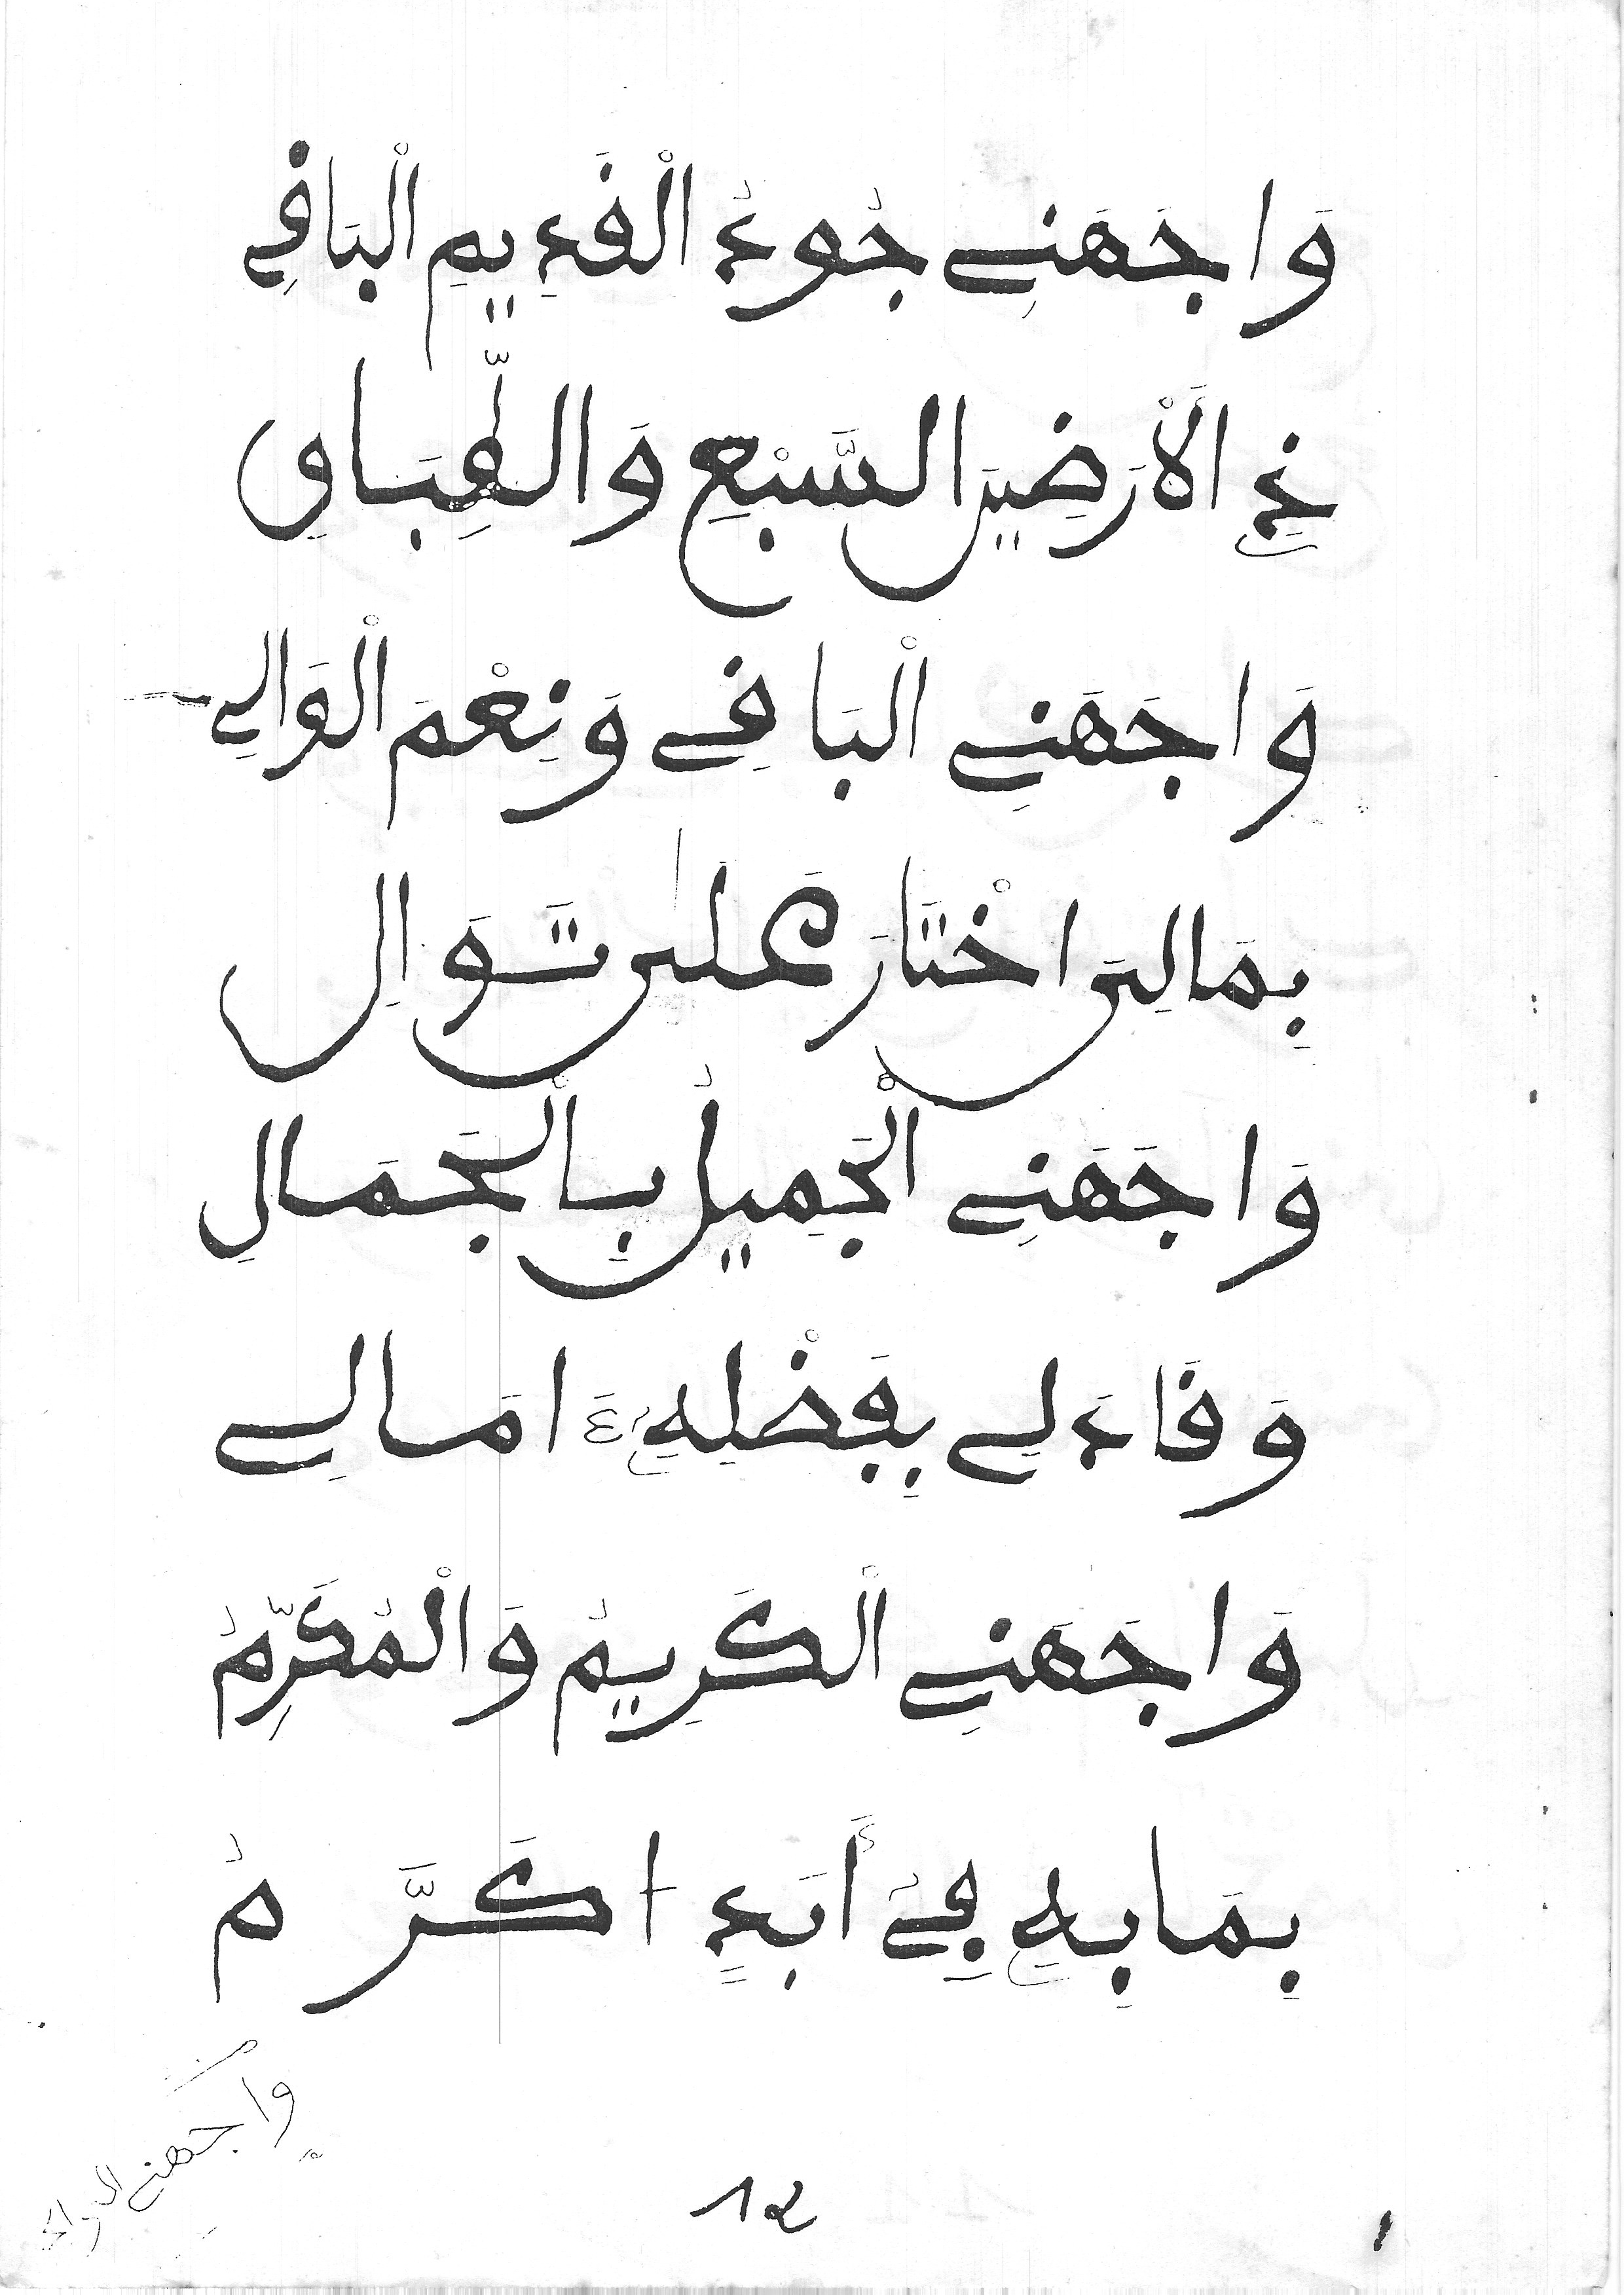 وَاجَهَنِے جُودُ الْقَدِيمِ الْبَاقِے
ذِے الْأَرَضِينَ السَّبْعِ وَالطِّبَاقِ
وَاجَهَنِے الْبَاقِے وَنِعْمَ الْوَالِے
بِمَا لِيَ اخْتَارَ عَلَى تَوَالِ
وَاجَهَنِے الْجَمِيلُ بِالْجَمَالِ
وَقَادَ لِے بِفَضْلِهِ ءَامَالِے
وَاجَهَنِے الْكَرِيمُ وَالْمُكَرِّمُ
بِمَا بِهِ فِے أَبَدٍ اكَرَّمُ
واجهنے
12